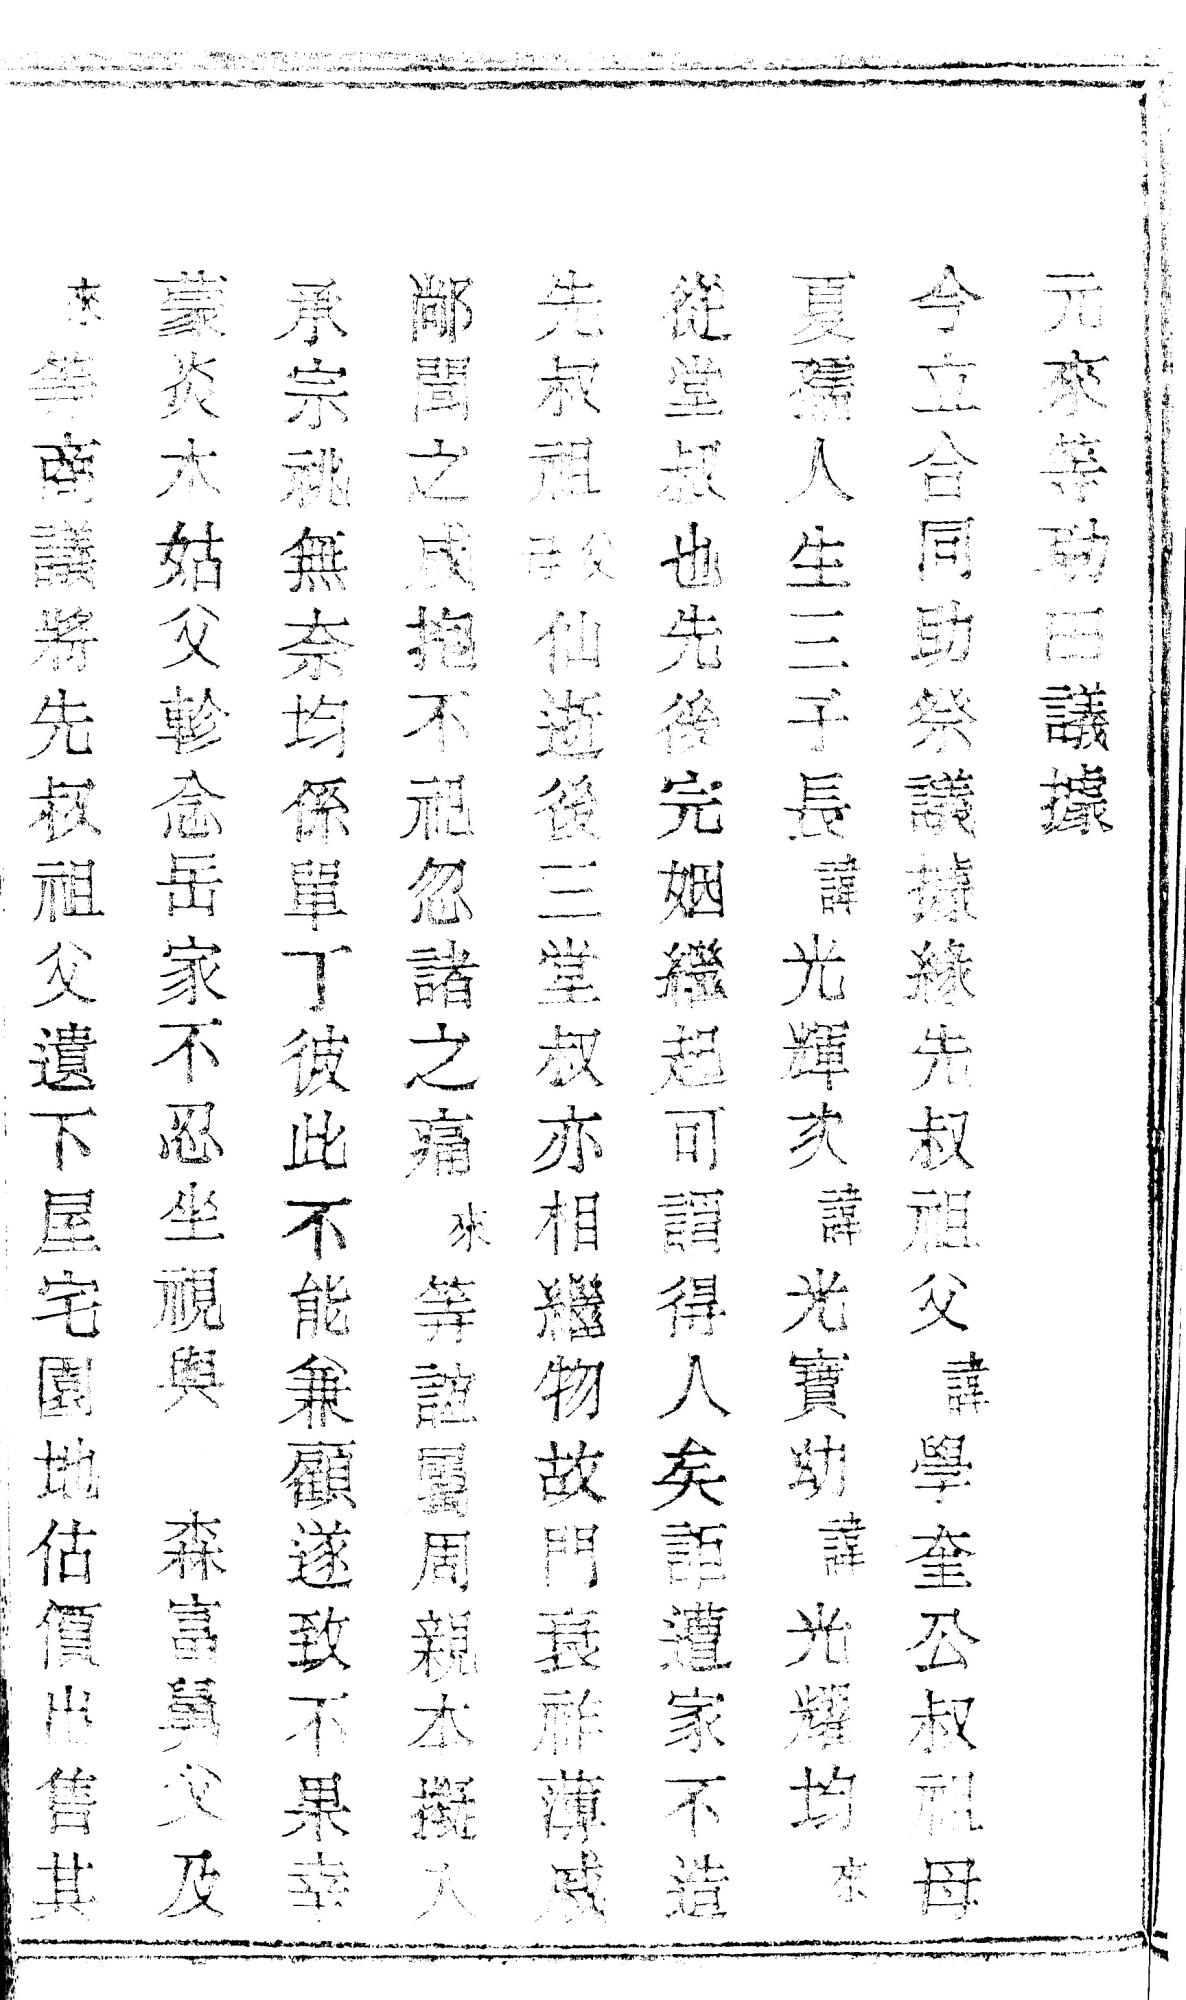 元來等助田議據
今立合同助祭議據緣先叔祖父諱學奎公叔祖母
夏孺人生三子長諱光輝次諱光寶幼諱光耀均來
從堂叔也先後完姻繼起可謂得人矣詎遭家不造
先叔祖父仙逝後三堂叔亦相繼物故門衰祚薄戚
鄰聞之咸抱不祀忽諸之痛來等誼屬周親本擬入
承宗祧無奈均係單丁彼此不能兼顧遂致不果幸
蒙炎木姑父軫念岳家不忍坐視與 森富舅父及
來等商議將先叔祖父遺下屋宅園地估價出售其